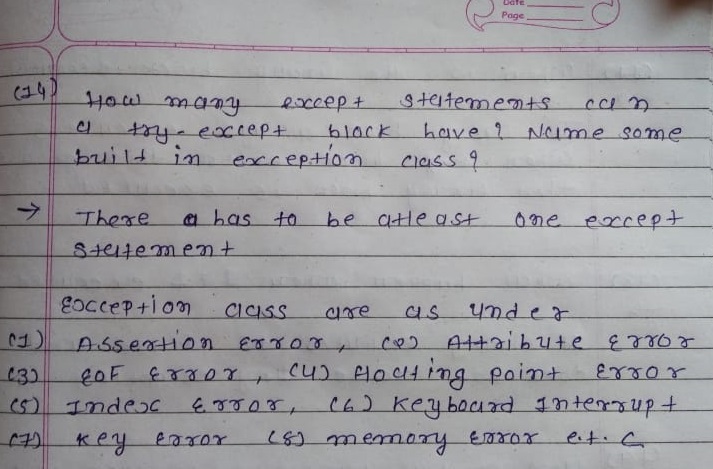 Date
Page
(14) How many except statements can
a try-except block have? Name some
built in exception class?
→ There has to be atleast one except
statement
Exception class are as under
(1) Assertion Error, (2) Attribute Error
(3) EOF Error, (4) Floating point Error
(5) Index Error, (6) Keyboard Interrupt
(7) Key Error (8) memory Error e.t.c